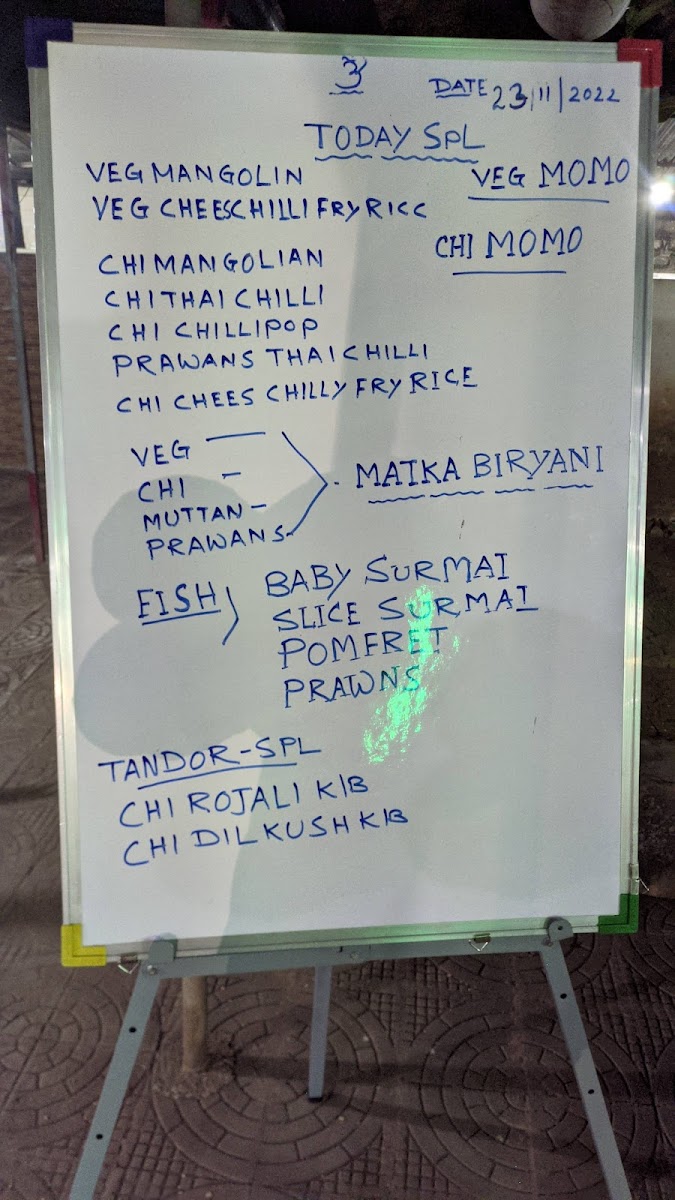 DATE 23/11/2022
TODAY SPL
VEG MANGOLIN
VEG MOMO
VEG CHEESCHILLI FRY RICC
CHI MOMO
CHI MANGOLIAN
CHI THAI CHILLI
CHI CHILLIPOP
PRAWANS THAI CHILLI
CHI CHEES CHILLY FRY RICE
VEG
CHI
MUTTAN -
PRAWANS
MATKA BIRYANI
FISH
BABY SURMAI
SLICE SURMAI
POMFRET
PRAWNS
TANDOR-SPL
CHI ROJALI K/B
CHI DILKUSH K/B